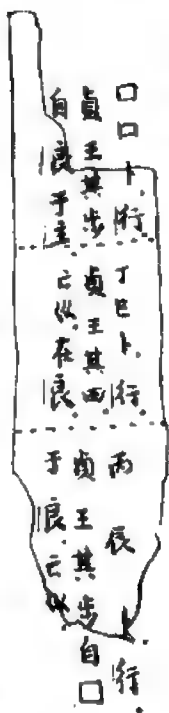 □□卜,行
貞王其步
自良于主
丁巳卜,行
貞王其田
亡在良
丙辰卜,行
貞王其步自□
于良亡